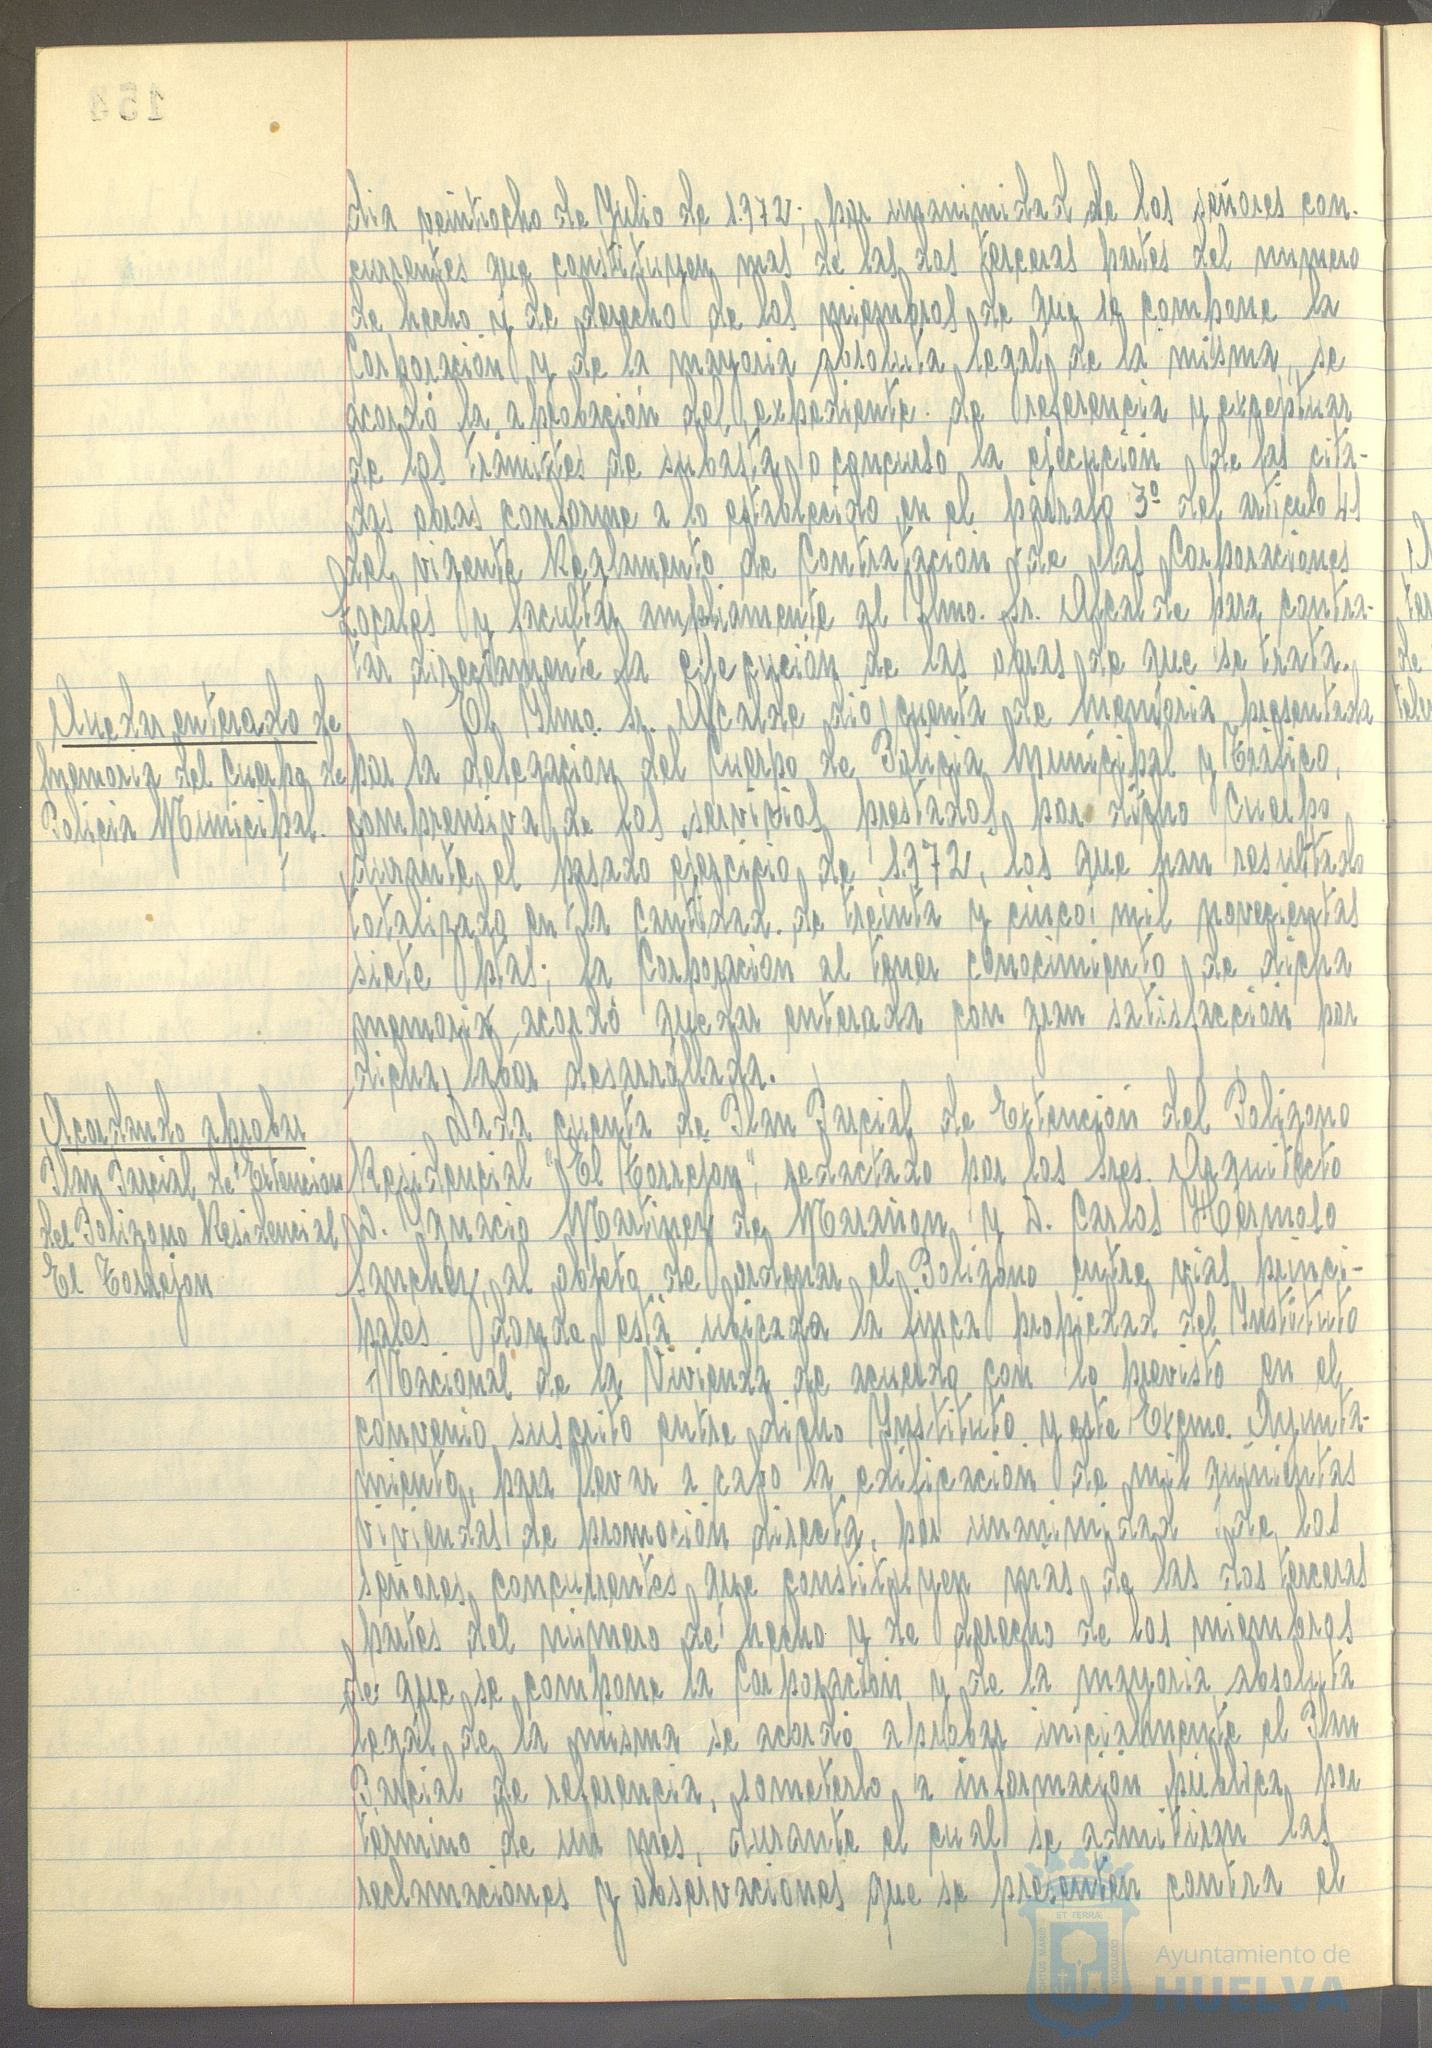 154
dia veintiocho de Julio de 1.972; por unanimidad de los señores con-
currentes que constituyen mas de las dos terceras partes del numero
de hecho y de derecho de los miembros de que se compone la
Corporación y de la mayoria absoluta legal de la misma, se
acordó la aprobación del expediente de referencia y exceptuar
de los tramites de subasta o concurso la ejecución de las cita-
das obras conforme a lo establecido en el párrafo 3º del articulo 41
del vigente Reglamento de Contratación de las Corporaciones
Locales y facultar ampliamente al Ilmo. Sr. Alcalde para contra-
tar directamente la ejecución de las obras de que se trata.
Quedar enterado de
memoria del Cuerpo de
Policia Municipal.
El Ilmo. Sr. Alcalde dió cuenta de memoria presentada
por la delegación del Cuerpo de Policia Municipal y Tráfico,
comprensiva de los servicios prestados por dicho Cuerpo
durante el pasado ejercicio de 1.972, los que han resultado
totalizado en la cantidad de treinta y cinco mil novecientas
siete ptas; la Corporación al tener conocimiento de dicha
memoria, acordó quedar enterada con gran satisfacción por
dicha labor desarrollada.
Acordando aprobar
Plan Parcial de Extencion
del Poligono Residencial
El Torrejon
Dada cuenta de Plan Parcial de Extención del Poligono
Residencial "El Torrejon", redactado por los sres. Arquitecto
D. Ignacio Martinez de Marañon y D. Carlos Hermoso
Sanchez, al objeto de ordenar el Poligono entre vias princi-
pales donde está ubicada la finca propiedad del Instituto
Nacional de la Vivienda de acuerdo con lo previsto en el
convenio suscrito entre dicho Instituto y este Excmo. Ayunta-
miento, para llevar a cabo la edificación de mil quinientas
viviendas de promoción directa, por unanimidad de los
señores concurrentes que constituyen mas de las dos terceras
partes del número de hecho y de derecho de los miembros
de que se compone la Corporación y de la mayoria absoluta
legal de la misma se acordó aprobar inicialmente el Plan
Parcial de referencia, someterlo a información pública por
término de un mes, durante el cual se admitiran las
reclamaciones y observaciones que se presenten contra el
Ayuntamiento de
HUELVA